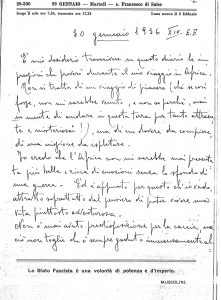 29-336 29 GENNAIO - Martedì - s. Francesco di Sales
Sorge il sole ore 7,26, tramonta ore 17,24 Luna nuova il 8 febbraio
30 gennaio 1936 XIV. E.F.
È mio desiderio trascrivere in questo diario le im
pressioni che proverò durante il mio viaggio in Africa.
Non si tratta di un viaggio di piacere (che se così
fosse, non mi sarebbe venuto, e non so perché, mai
in mente di andare in questa terra per tanto attraen
te e misteriosa!), ma di un dovere da compiere,
di una missione da espletare.
Io credo che l'Africa non mi sarebbe mai presenta
ta più bella e ricca di emozioni senza lo sfondo di
una guerra. Ed è appunto per questo ch'io vado,
attratto soprattutto dal pensiero di poter vivere una
vita piuttosto avventurosa.
Non è mia avuto predisposizione per la caccia, ma
ciò non toglie che è sempre goduto immensamente al
Lo Stato Fascista è una volontà di potenza e d'imperio.
MUSSOLINI.